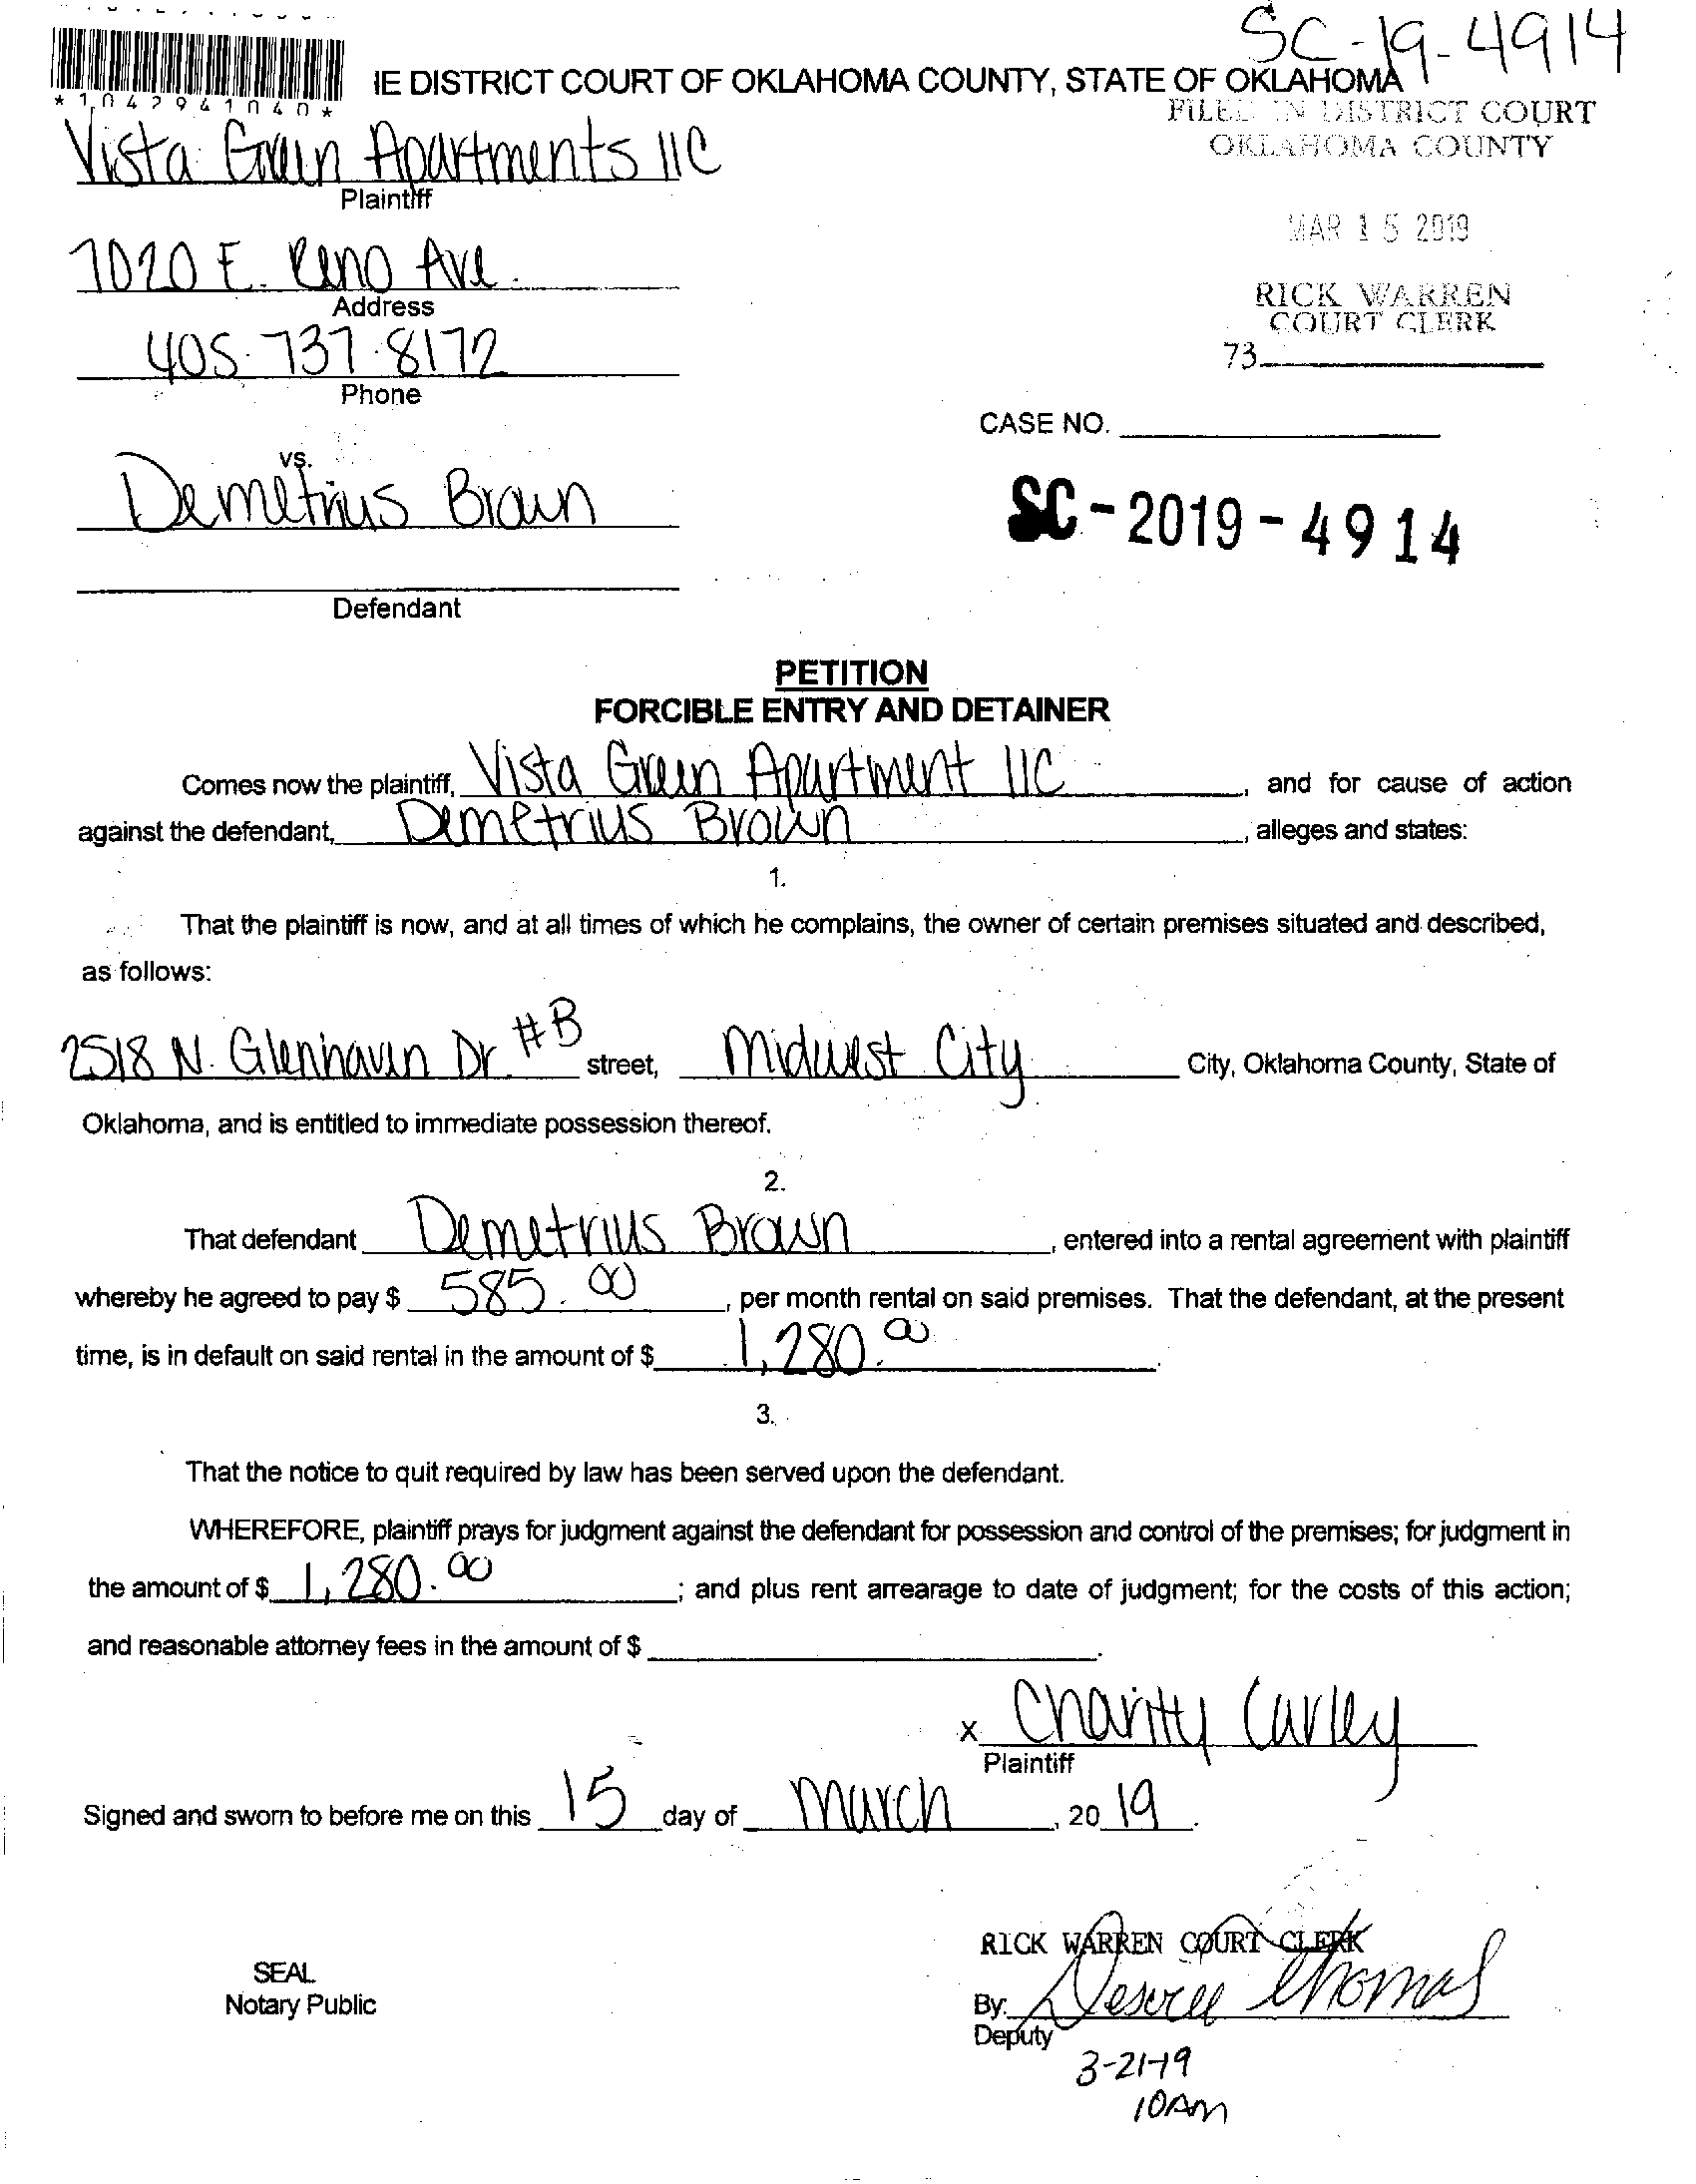 SC-19-4914
IE DISTRICT COURT OF OKLAHOMA COUNTY, STATE OF OKLAHOMA
*1042941040*
FILED IN DISTRICT COURT
OKLAHOMA COUNTY
Vista Green Apartments llC
Plaintiff
MAR 15 2019
7020 E. Reno Ave.
Address
RICK WARREN
COURT CLERK
405-737-8172
73
Phone
CASE NO.
vs.
Demetrius Brown
SC-2019-4914
Defendant
PETITION
FORCIBLE ENTRY AND DETAINER
Comes now the plaintiff, Vista Green Apartment llC, and for cause of action
against the defendant, Demetrius Brown, alleges and states:
1.
That the plaintiff is now, and at all times of which he complains, the owner of certain premises situated and described,
as follows:
2518 N. Glenhaven Dr. #B street, Midwest City City, Oklahoma County, State of
Oklahoma, and is entitled to immediate possession thereof.
2.
That defendant Demetrius Brown, entered into a rental agreement with plaintiff
whereby he agreed to pay $ 585.00, per month rental on said premises. That the defendant, at the present
time, is in default on said rental in the amount of $ 1,280.00.
3.
That the notice to quit required by law has been served upon the defendant.
WHEREFORE, plaintiff prays for judgment against the defendant for possession and control of the premises; for judgment in
the amount of $ 1,280.00; and plus rent arrearage to date of judgment; for the costs of this action;
and reasonable attorney fees in the amount of $ .
x Charity Curley
Plaintiff
Signed and sworn to before me on this 15 day of March, 20 19.
RICK WARREN COURT CLERK
SEAL
Notary Public
By: Thomas
Deputy
3-21-19
10AM